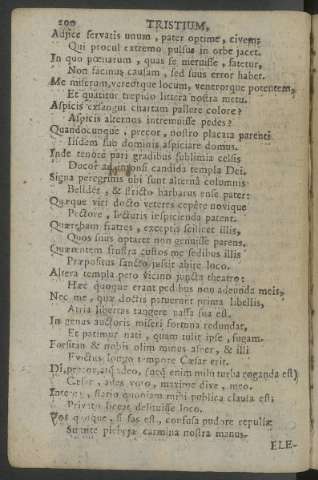 200 TRISTIUM,
Adjice servatis unum, pater optime, civem;
Qui procul extremo pulsus in orbe jacet.
In quo pœnarum, quas se meruisse, fatetur,
Non facinus causam, sed suus error habet.
Me miserum, vereorque locum, venerorque potentem,
Et quatitur trepido littera nostra metu.
Aspicis exsangui chartam pallere colore?
Aspicis alternos intremuisse pedes?
Quandocunque, precor, nostro placata parenti
Iisdem sub dominis aspiciare domus.
Inde tenore pari gradibus sublimia celsis
Ducor ad intonsi candida templa Dei.
Signa peregrinis ubi sunt alterna columnis
Belides, & stricto barbarus ense pater:
Quæque viri docto veteres cepere novique
Pectore, lecturis inspicienda patent.
Quærebam fratres, exceptis scilicet illis,
Quos suus optaret non genuisse parens.
Quærentem frustra custos me sedibus illis
Præpositus sancto jussit abire loco.
Altera templa peto vicino juncta theatro:
Hæc quoque erant pedibus non adeunda meis,
Nec me, quæ doctis patuerunt prima libellis,
Atria libertas tangere passa sua est.
In genus auctoris miseri fortuna redundat,
Et patimur nati, quam tulit ipse, fugam.
Forsitan & nobis olim minus asper, & illi
Evictus longo tempore Cæsar erit.
Di, precor, atque adeo, (neq enim mihi turba roganda est)
Cæsar, ades voto, maxime dive, meo.
Interea, statio quoniam mihi publica clausa est;
Privato liceat delituisse loco.
Vos quoque, si fas est, confusa pudore repulsæ
Sumite plebejæ carmina nostra manus.
ELE-